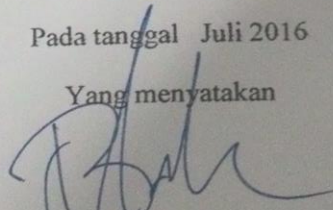 Pada tanggal Juli 2016
Yang menyatakan